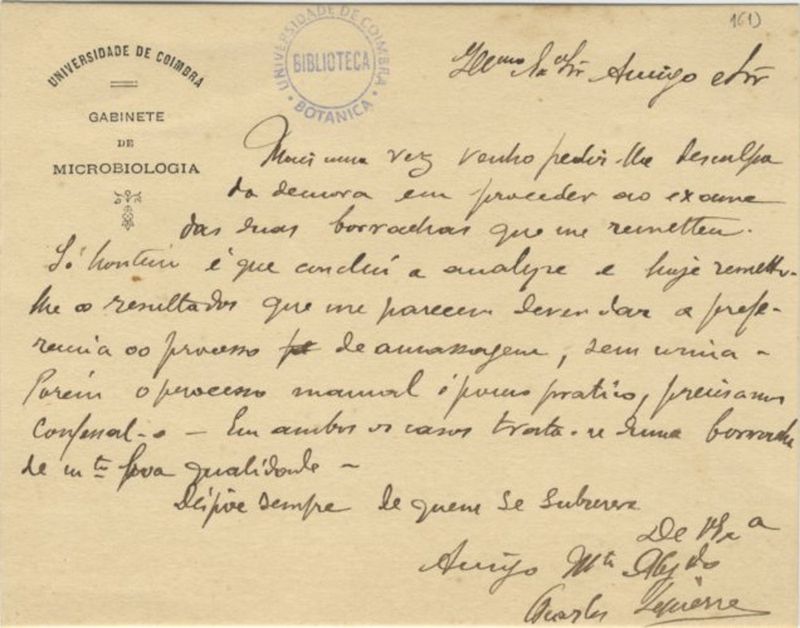 161)
UNIVERSIDADE DE COIMBRA
GABINETE
DE
MICROBIOLOGIA
UNIVERSIDADE DE COIMBRA
BIBLIOTECA
BOTANICA
Illmo Exmo Sr Amigo e Sr
Mais uma vez venho pedir-lhe desculpa
da demora em proceder ao exame
das duas borrachas que me remetteu.
Só hontem é que concluí a analyse e hoje remetto-
lhe os resultados que me parecem dever dar a prefe-
rencia ao processo de amassagem, sem urina -
Porém o processo manual é pouco pratico, precisamos
confessal-o - Em ambos os casos trata-se duma borracha
de mto boa qualidade -
Dispõe sempre de quem se subscreve
De V. Exa
Amigo Mto Obgdo
Charles Lepierre